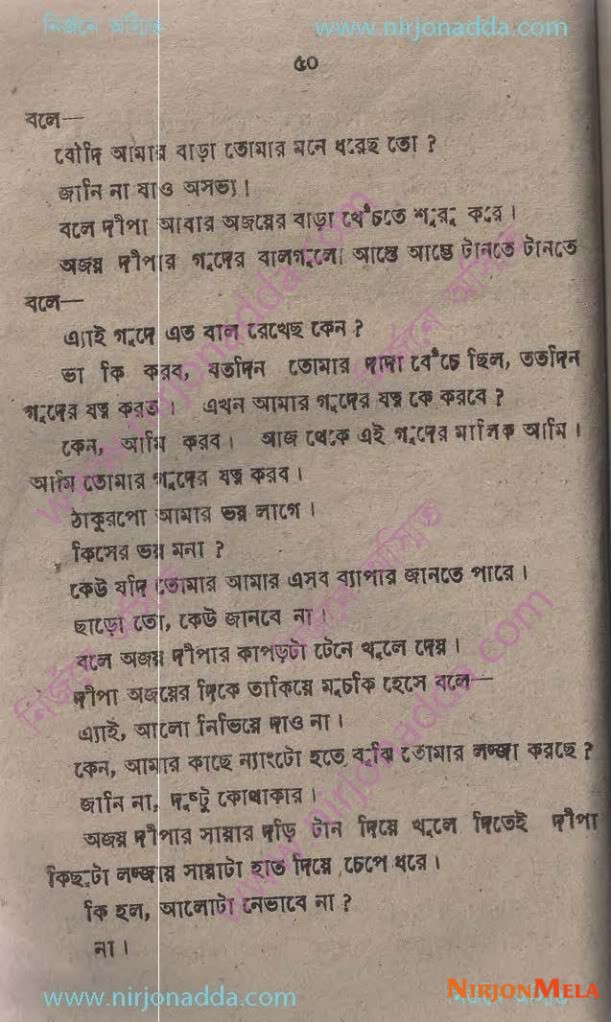 নির্জনে অস্মিত www.nirjonadda.com
৫০
বলে—
বৌদি আমার বাড়া তোমার মনে ধরেছ তো ?
জানি না যাও অসভ্য।
বলে দীপা আবার অজয়ের বাড়া খেঁচতে শুরু করে।
অজয় দীপার গুদের বালগুলো আস্তে আস্তে টানতে টানতে
বলে—
এ্যাই গুদে এত বাল রেখেছ কেন ?
তা কি করব, যতদিন তোমার দাদা বেঁচে ছিল, ততদিন
গুদের যত্ন করত। এখন আমার গুদের যত্ন কে করবে ?
কেন, আমি করব। আজ থেকে এই গুদের মালিক আমি।
আমি তোমার গুদের যত্ন করব।
ঠাকুরপো আমার ভয় লাগে।
কিসের ভয় মনা ?
কেউ যদি তোমার আমার এসব ব্যাপার জানতে পারে।
ছাড়ো তো, কেউ জানবে না।
বলে অজয় দীপার কাপড়টা টেনে খুলে দেয়।
দীপা অজয়ের দিকে তাকিয়ে মুচকি হেসে বলে—
এ্যাই, আলো নিভিয়ে দাও না।
কেন, আমার কাছে ন্যাংটো হতে বুঝি তোমার লজ্জা করছে ?
জানি না, দুষ্টু কোথাকার।
অজয় দীপার সায়ার দড়ি টান দিয়ে খুলে দিতেই দীপা
কিছুটা লজ্জায় সায়াটা হাত দিয়ে চেপে ধরে।
কি হল, আলোটা নেভাবে না ?
না।
www.nirjonadda.com
NIRJONMELA